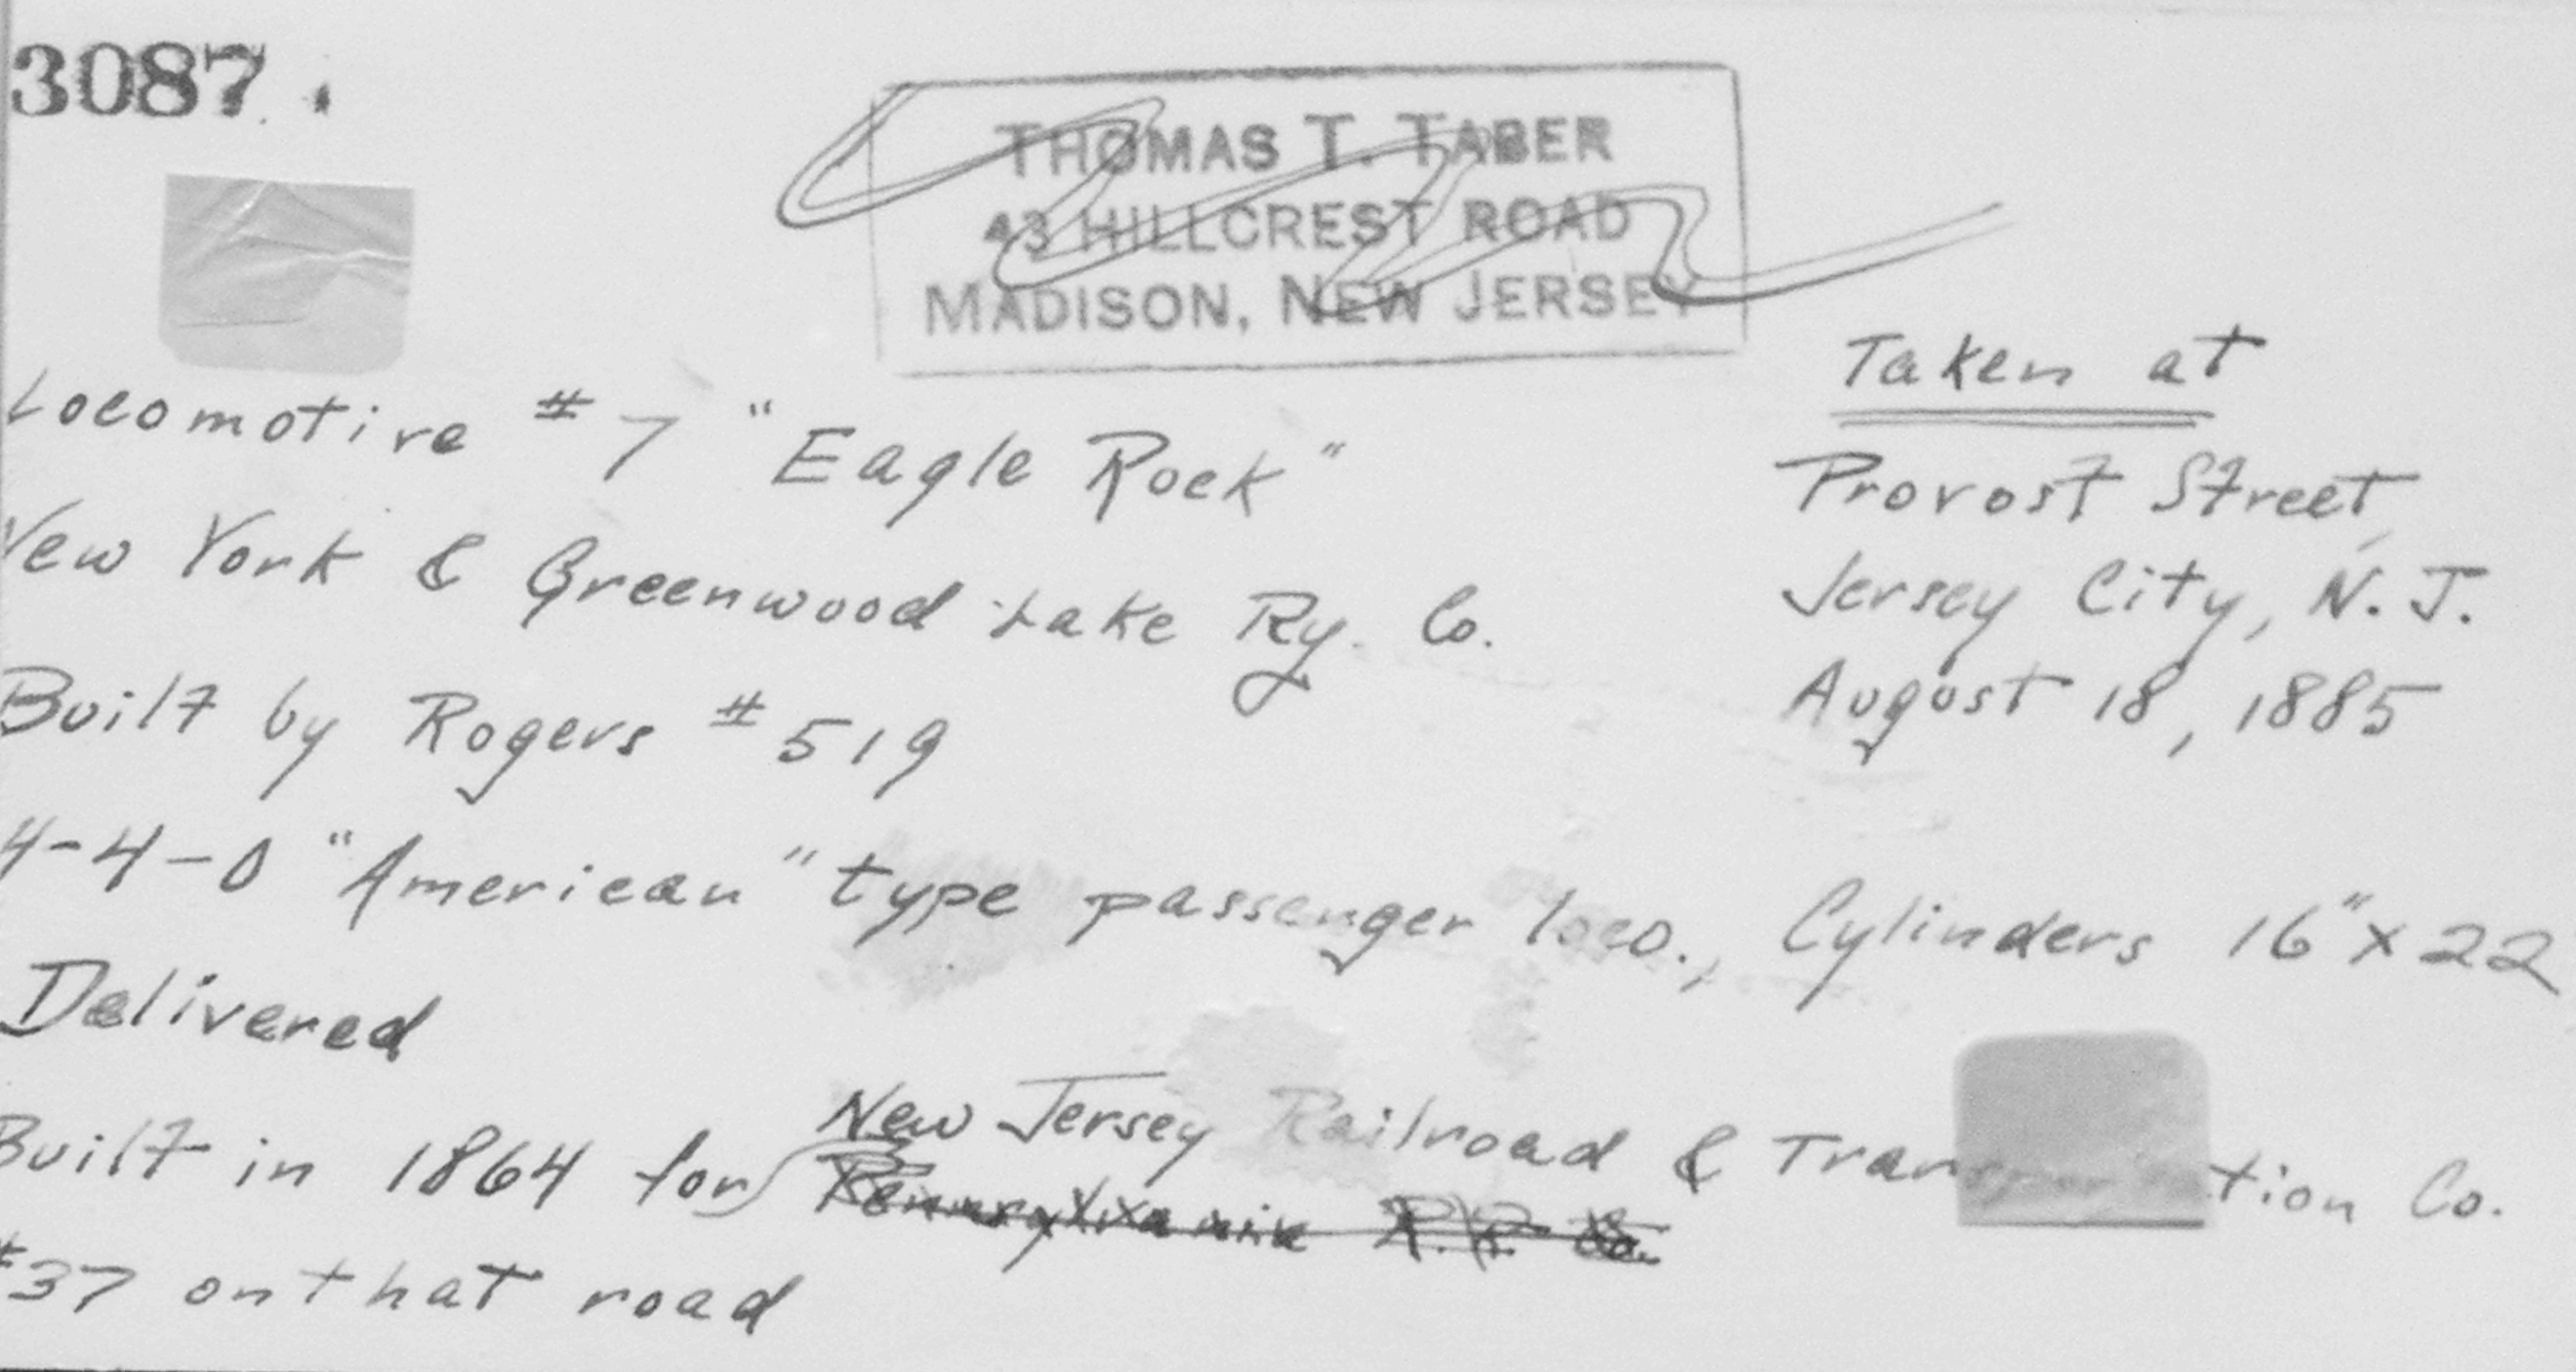 3087.
THOMAS T. TABER
43 HILLCREST ROAD
MADISON, NEW JERSEY
Taken at
Provost Street,
Jersey City, N.J.
August 18, 1885
Locomotive #7 "Eagle Rock"
New York & Greenwood Lake Ry. Co.
Built by Rogers #519
4-4-0 "American" type passenger loco., Cylinders 16"x22
Delivered
New Jersey Railroad & Transportation Co.
Built in 1864 for Pennsylvania R.R. Co.
#37 on that road